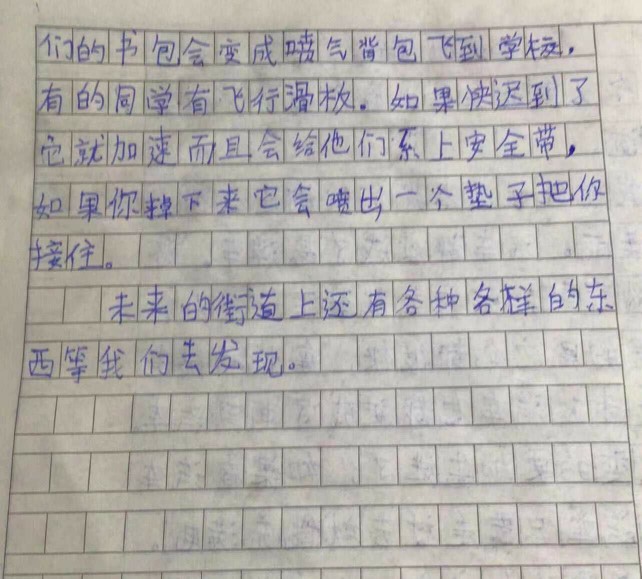 们的书包会变成喷气背包飞到学校，
有的同学有飞行滑板。如果快迟到了
它就加速而且会给他们系上安全带，
如果你掉下来它会喷出一个垫子把你
接住。
未来的街道上还有各种各样的东
西等我们去发现。